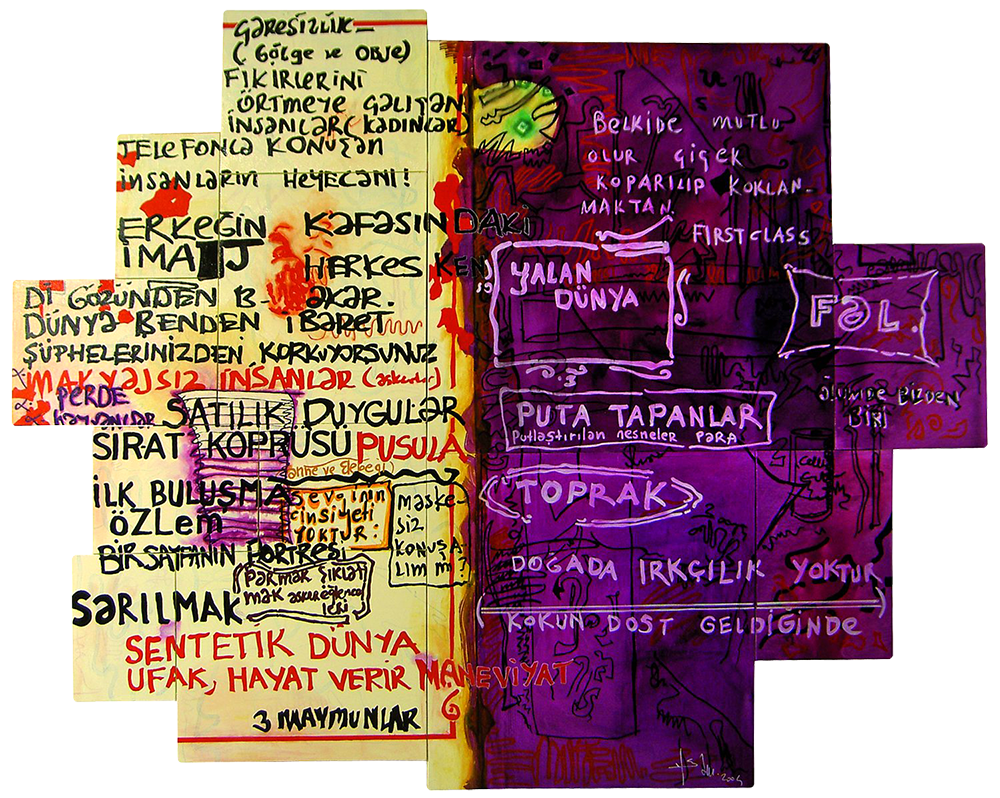 ÇƏRESİZLİK
( GÖLGE ve OBJE)
FİKİRLERİNİ
ÖRTMEYE ÇƏLIŞƏN
İNSƏNLƏR( KƏDINLƏR)
TELEFONLƏ KONUŞƏN
İNSƏNLƏRIN HEYECƏNI!
ERKEĞİN KƏFƏSINDAKİ
İMAJ
HERKES KEN
Dİ GÖZÜNDEN B-ƏKƏR.
DÜNYƏ BENDEN İBƏRET
ŞÜPHELERINIZDEN KORKUYORSUNUZ
MAKYƏJSIZ İNSƏNLƏR (əskerler)
PERDE
həyvənlər
SATILIK DUYGULƏR
SIRAT KÖPRÜSÜ PUSULA
ənne ve bebeği
İLK BULUŞMA
ÖZLem
sevginin
cinsiyeti
YOKTUR.
məske
siz
konuşa
lım mı?
BİR SAYFANIN PORTRESİ
pərmək şıklət
mək əsker eğlence
leri
SƏRILMAK
SENTETİK DÜNYA
UFAK, HAYAT VERİR MANEVİYAT
3 MAYMUNLAR
6
BELKİDE MUTLU
OLUR ÇİÇEK
KOPARILIP KOKLAN-
MAKTAN.
FIRST CLASS
YALAN
DÜNYA
FƏL.
ƏLIMDE BİZDEN
BİRİ
PUTA TAPANLAR
Putləştırılən nesneler PƏRA
TOPRAK
DOĞADA IRKÇILIK YOKTUR
( KOKUN DOST GELDİĞİNDE )
2004